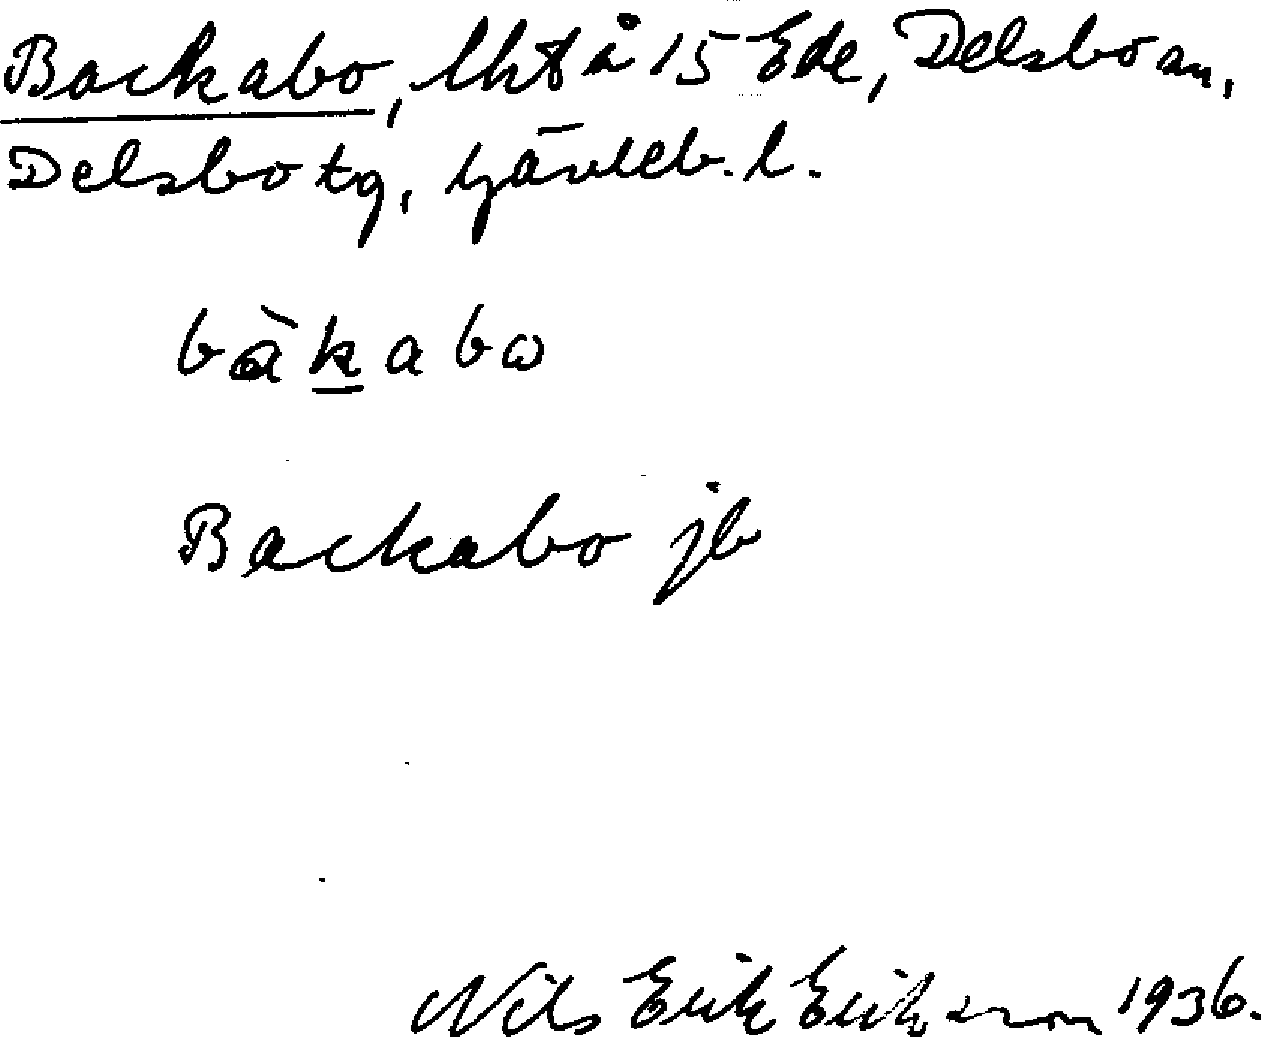 Backabo, lht å 15 Ede, Delsbo sn,
Delsbo tg, Gävleb. l.
bàkabω
Backabo jb
Nils Erik Eriksson 1936.